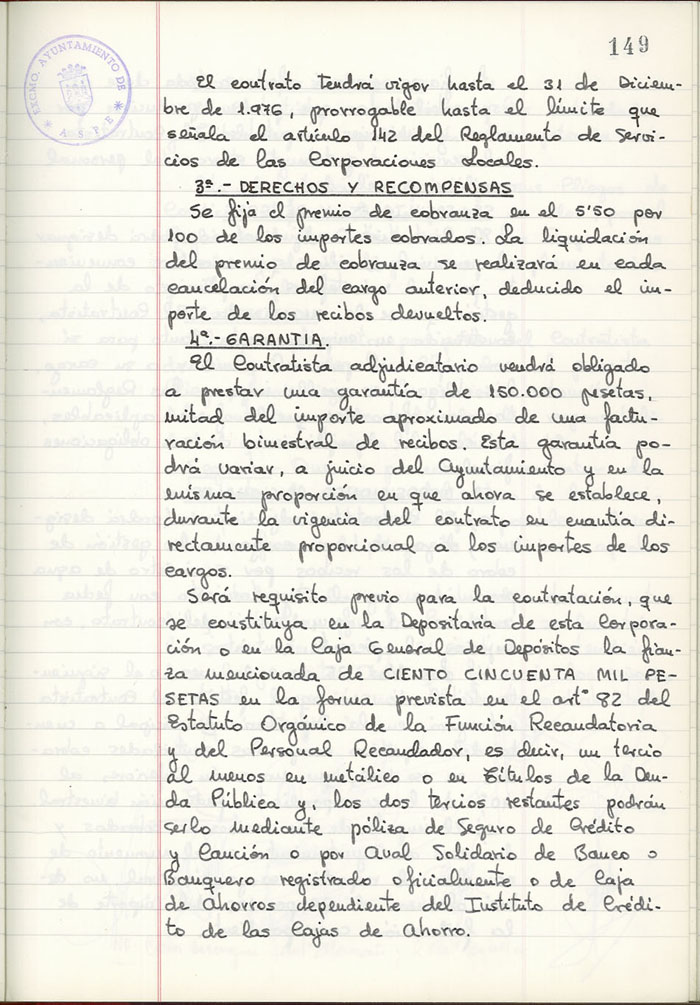 149
EXCMO. AYUNTAMIENTO DE
* ASPE *
El contrato tendrá vigor hasta el 31 de Diciem-
bre de 1.976, prorrogable hasta el límite que
señala el artículo 142 del Reglamento de Servi-
cios de las Corporaciones Locales.
3ª.- DERECHOS Y RECOMPENSAS
Se fija el premio de cobranza en el 5'50 por
100 de los importes cobrados. La liquidación
del premio de cobranza se realizará en cada
cancelación del cargo anterior, deducido el im-
porte de los recibos devueltos.
4ª.- GARANTIA.
El Contratista adjudicatario vendrá obligado
a prestar una garantía de 150.000 pesetas,
mitad del importe aproximado de una factu-
ración bimestral de recibos. Esta garantía po-
drá variar, a juicio del Ayuntamiento y en la
misma proporción en que ahora se establece,
durante la vigencia del contrato en cuantía di-
rectamente proporcional a los importes de los
cargos.
Será requisito previo para la contratación, que
se constituya en la Depositaria de esta Corpora-
ción o en la Caja General de Depósitos la fian-
za mencionada de CIENTO CINCUENTA MIL PE-
SETAS en la forma prevista en el artº 82 del
Estatuto Orgánico de la Función Recaudatoria
y del Personal Recaudador, es decir, un tercio
al menos en metálico o en Títulos de la Deu-
da Pública y, los dos tercios restantes podrán
serlo mediante póliza de Seguro de Crédito
y Caución o por Aval Solidario de Banco o
Banquero registrado oficialmente o de Caja
de Ahorros dependiente del Instituto de Crédi-
to de las Cajas de Ahorro.